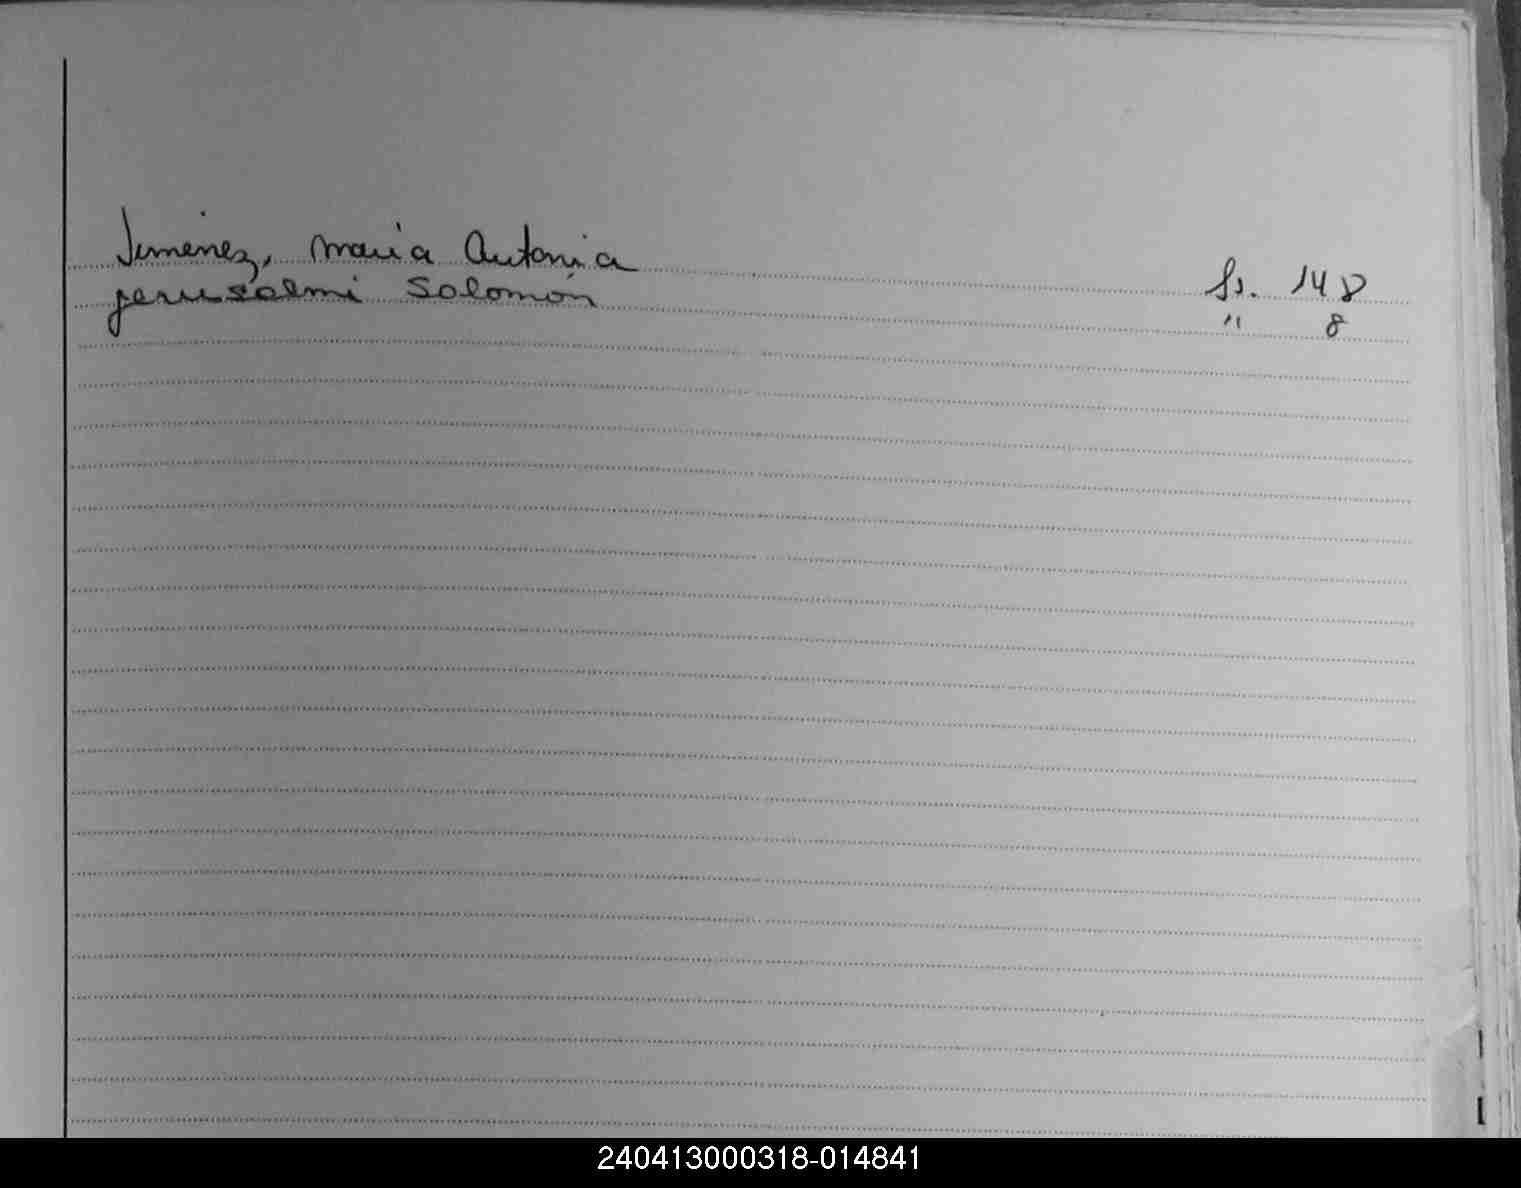 Jimenez, Maria Antonia fs. 148
Jerusalmi Solomón " 8
240413000318-014841